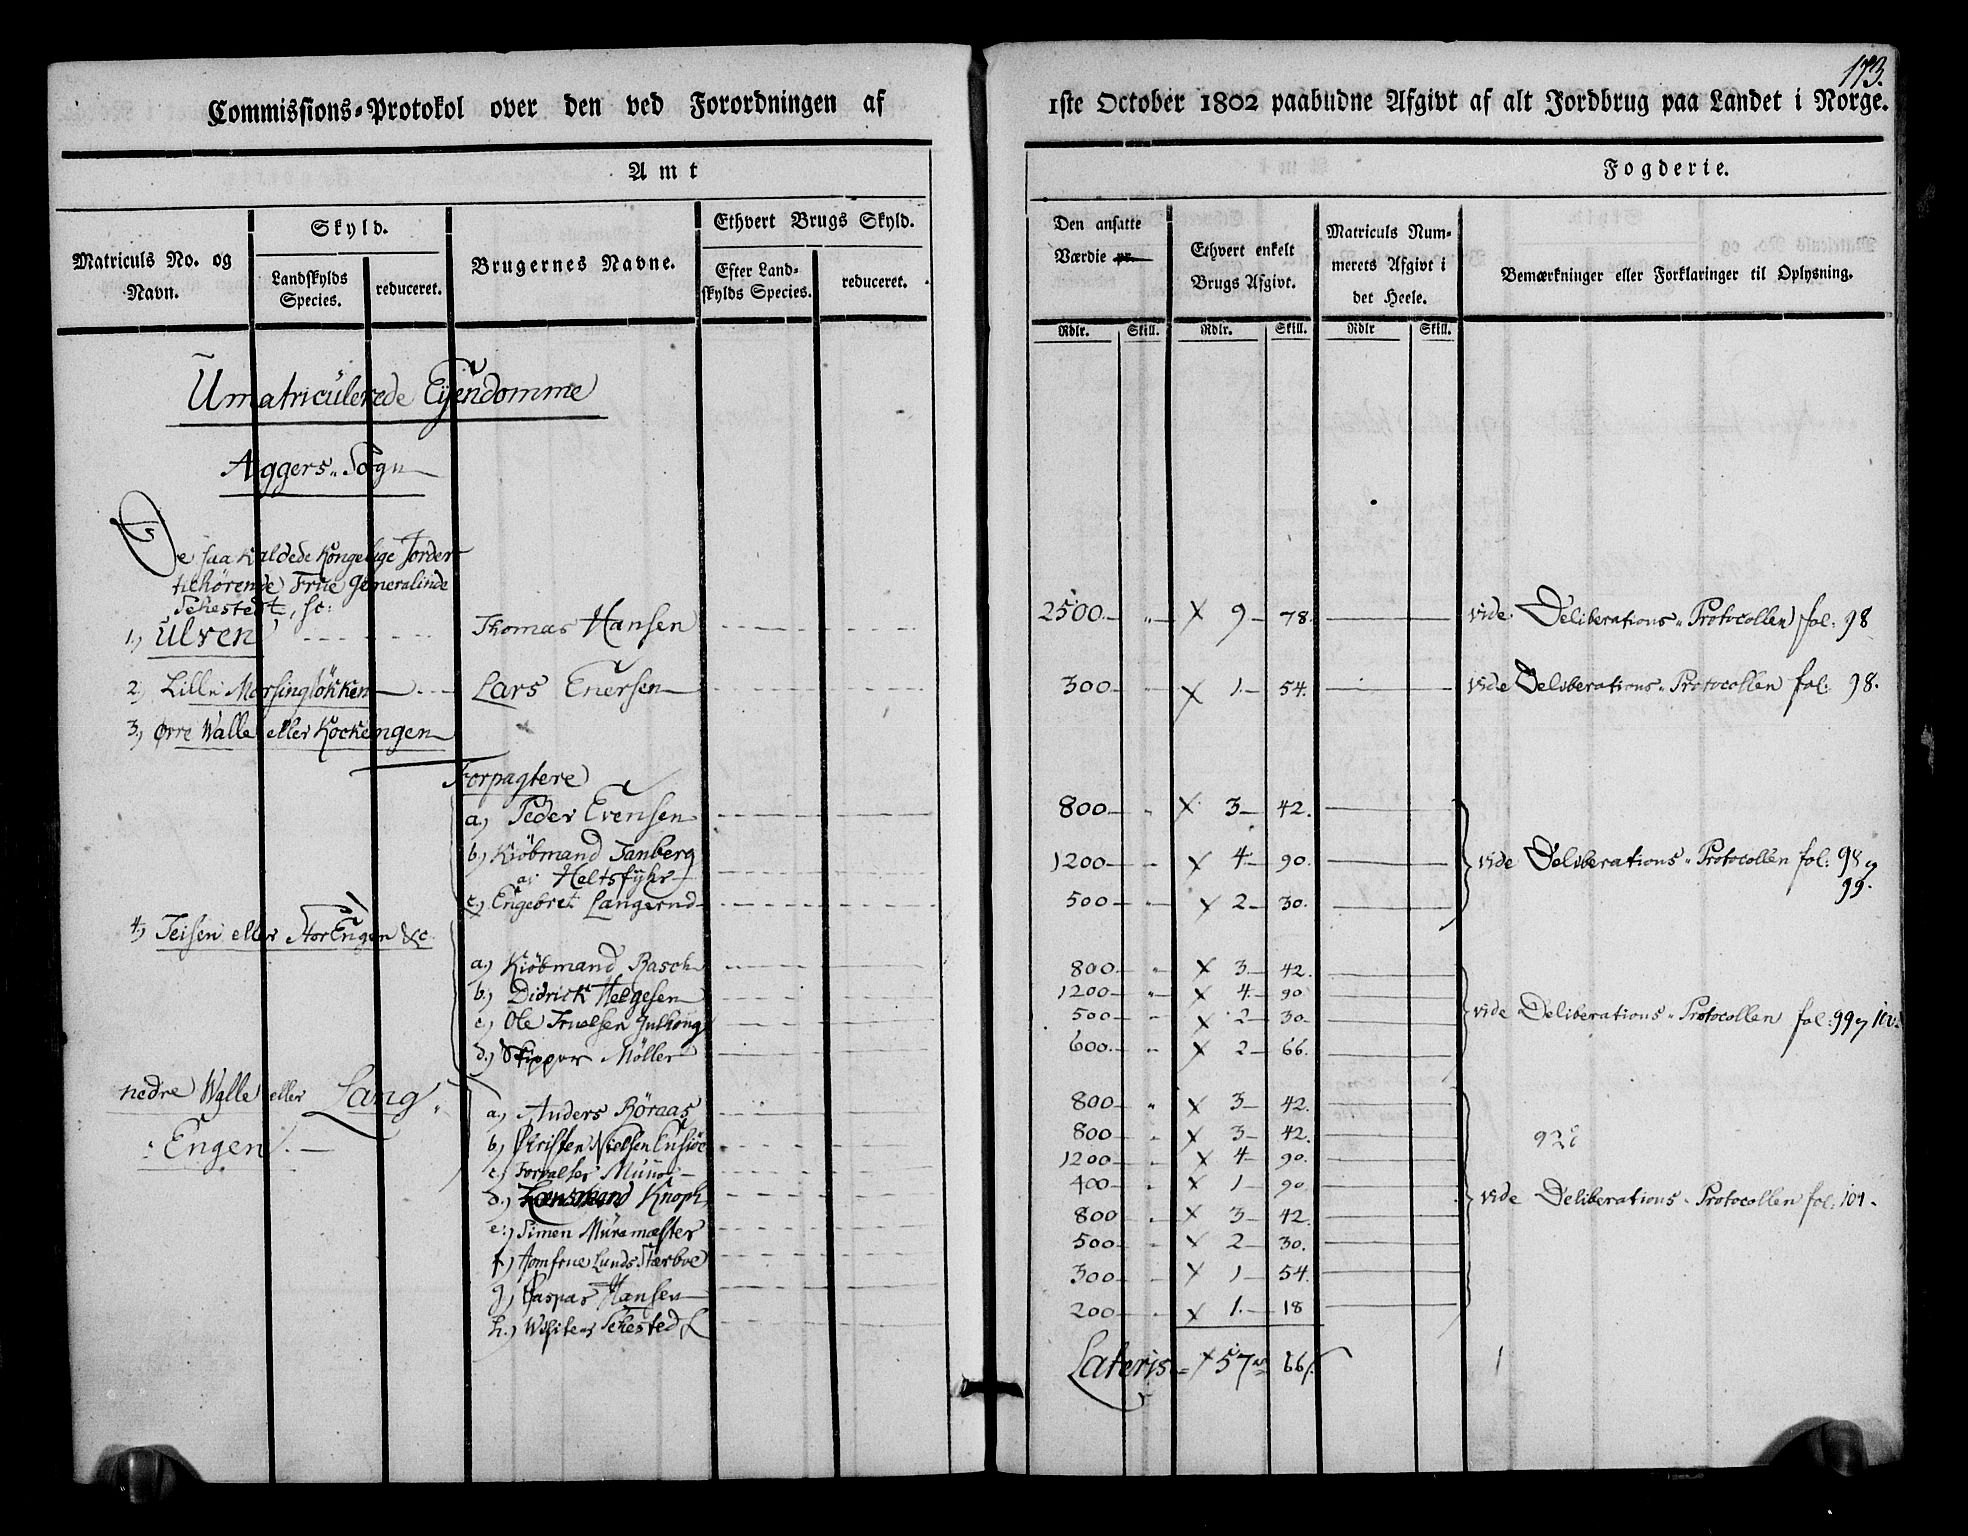 173.
Commissions-Protokol over den ved Forordningen af 1ste October 1802 paabudne Afgivt af alt Jordbrug paa Landet i Norge.
Amt
Fogderie.
Matriculs No. og Navn.
Skyld.
Landskylds Species.
reduceret.
Brugernes Navne.
Ethvert Brugs Skyld.
Efter Landskylds Species.
reduceret.
Den ansatte Værdie pr.
Ethvert enkelt Brugs Afgivt.
Matriculs Nummerets Afgivt i det Heele.
Bemærkninger eller Forklaringer til Oplysning.
Rdlr. Skill. Rdlr. Skill. Rdlr Skill.
Umatriculerede Eijendomme
Aggers Sogn
De saa kaldede Kongelige Jorder
tilhørende Frue Generalinde
Sehestedt, sc:
1.) Ulven Thomas Hansen 2500 " X 9 78. vide Deliberations Protocollen fol: 98
2) Lille Morsingløkken Lars Enersen 300 X 1 54. vide Deliberations Protocollen fol: 98.
3.) Øvre Walle eller Kockengen
Forpagtere
a.) Peder Evensen 800 " X 3 42.
b.) Kiöbmand Tanberg
a: Heltsfyhr 1200 X 4 90. vide Deliberations Protocollen fol: 98 og 99.
c.) Engebret Langerud 500 X 2 30.
4) Teisen eller StorEngen &c.
a.) Kiöbmand Rasch 800 " X 3 42.
b.) Didrick Helgesen 1200 " X 4 90
c.) Ole Truelsen 500 X 2 30 vide Deliberations Protocollen fol: 99 og 100.
d.) Skipper Möller 600. X 2 66.
nedre Walle eller Lang
Engen
a.) Anders Röraas 800 " X 3 42.
b.) Christen Nielsen 800 X 3 42. 928
c.) Forvalter 1200 X 4 90.
d.) Knoph 400 X 1 90 vide Deliberations Protocollen fol: 101.
e.) Simen Müremester 800 X 3 42.
f.) Jomfrue Lunds Stærboe 500 X 2 30.
g.) Caspar Hansen 300 X 1 54.
h.) Sehested 200 X 1 18
Lateris X 57 66